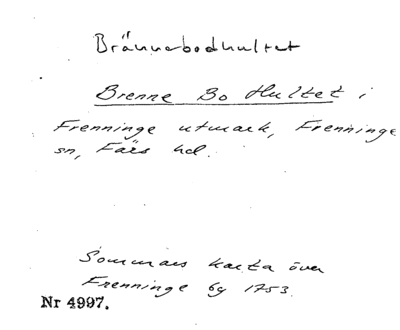 Brännebodhultet
Brenne Bo Hultet i
Frenninge utmark, Frenninge
sn, Färs hd.
Sommars karta över
Frenninge by 1753.
Nr 4997.